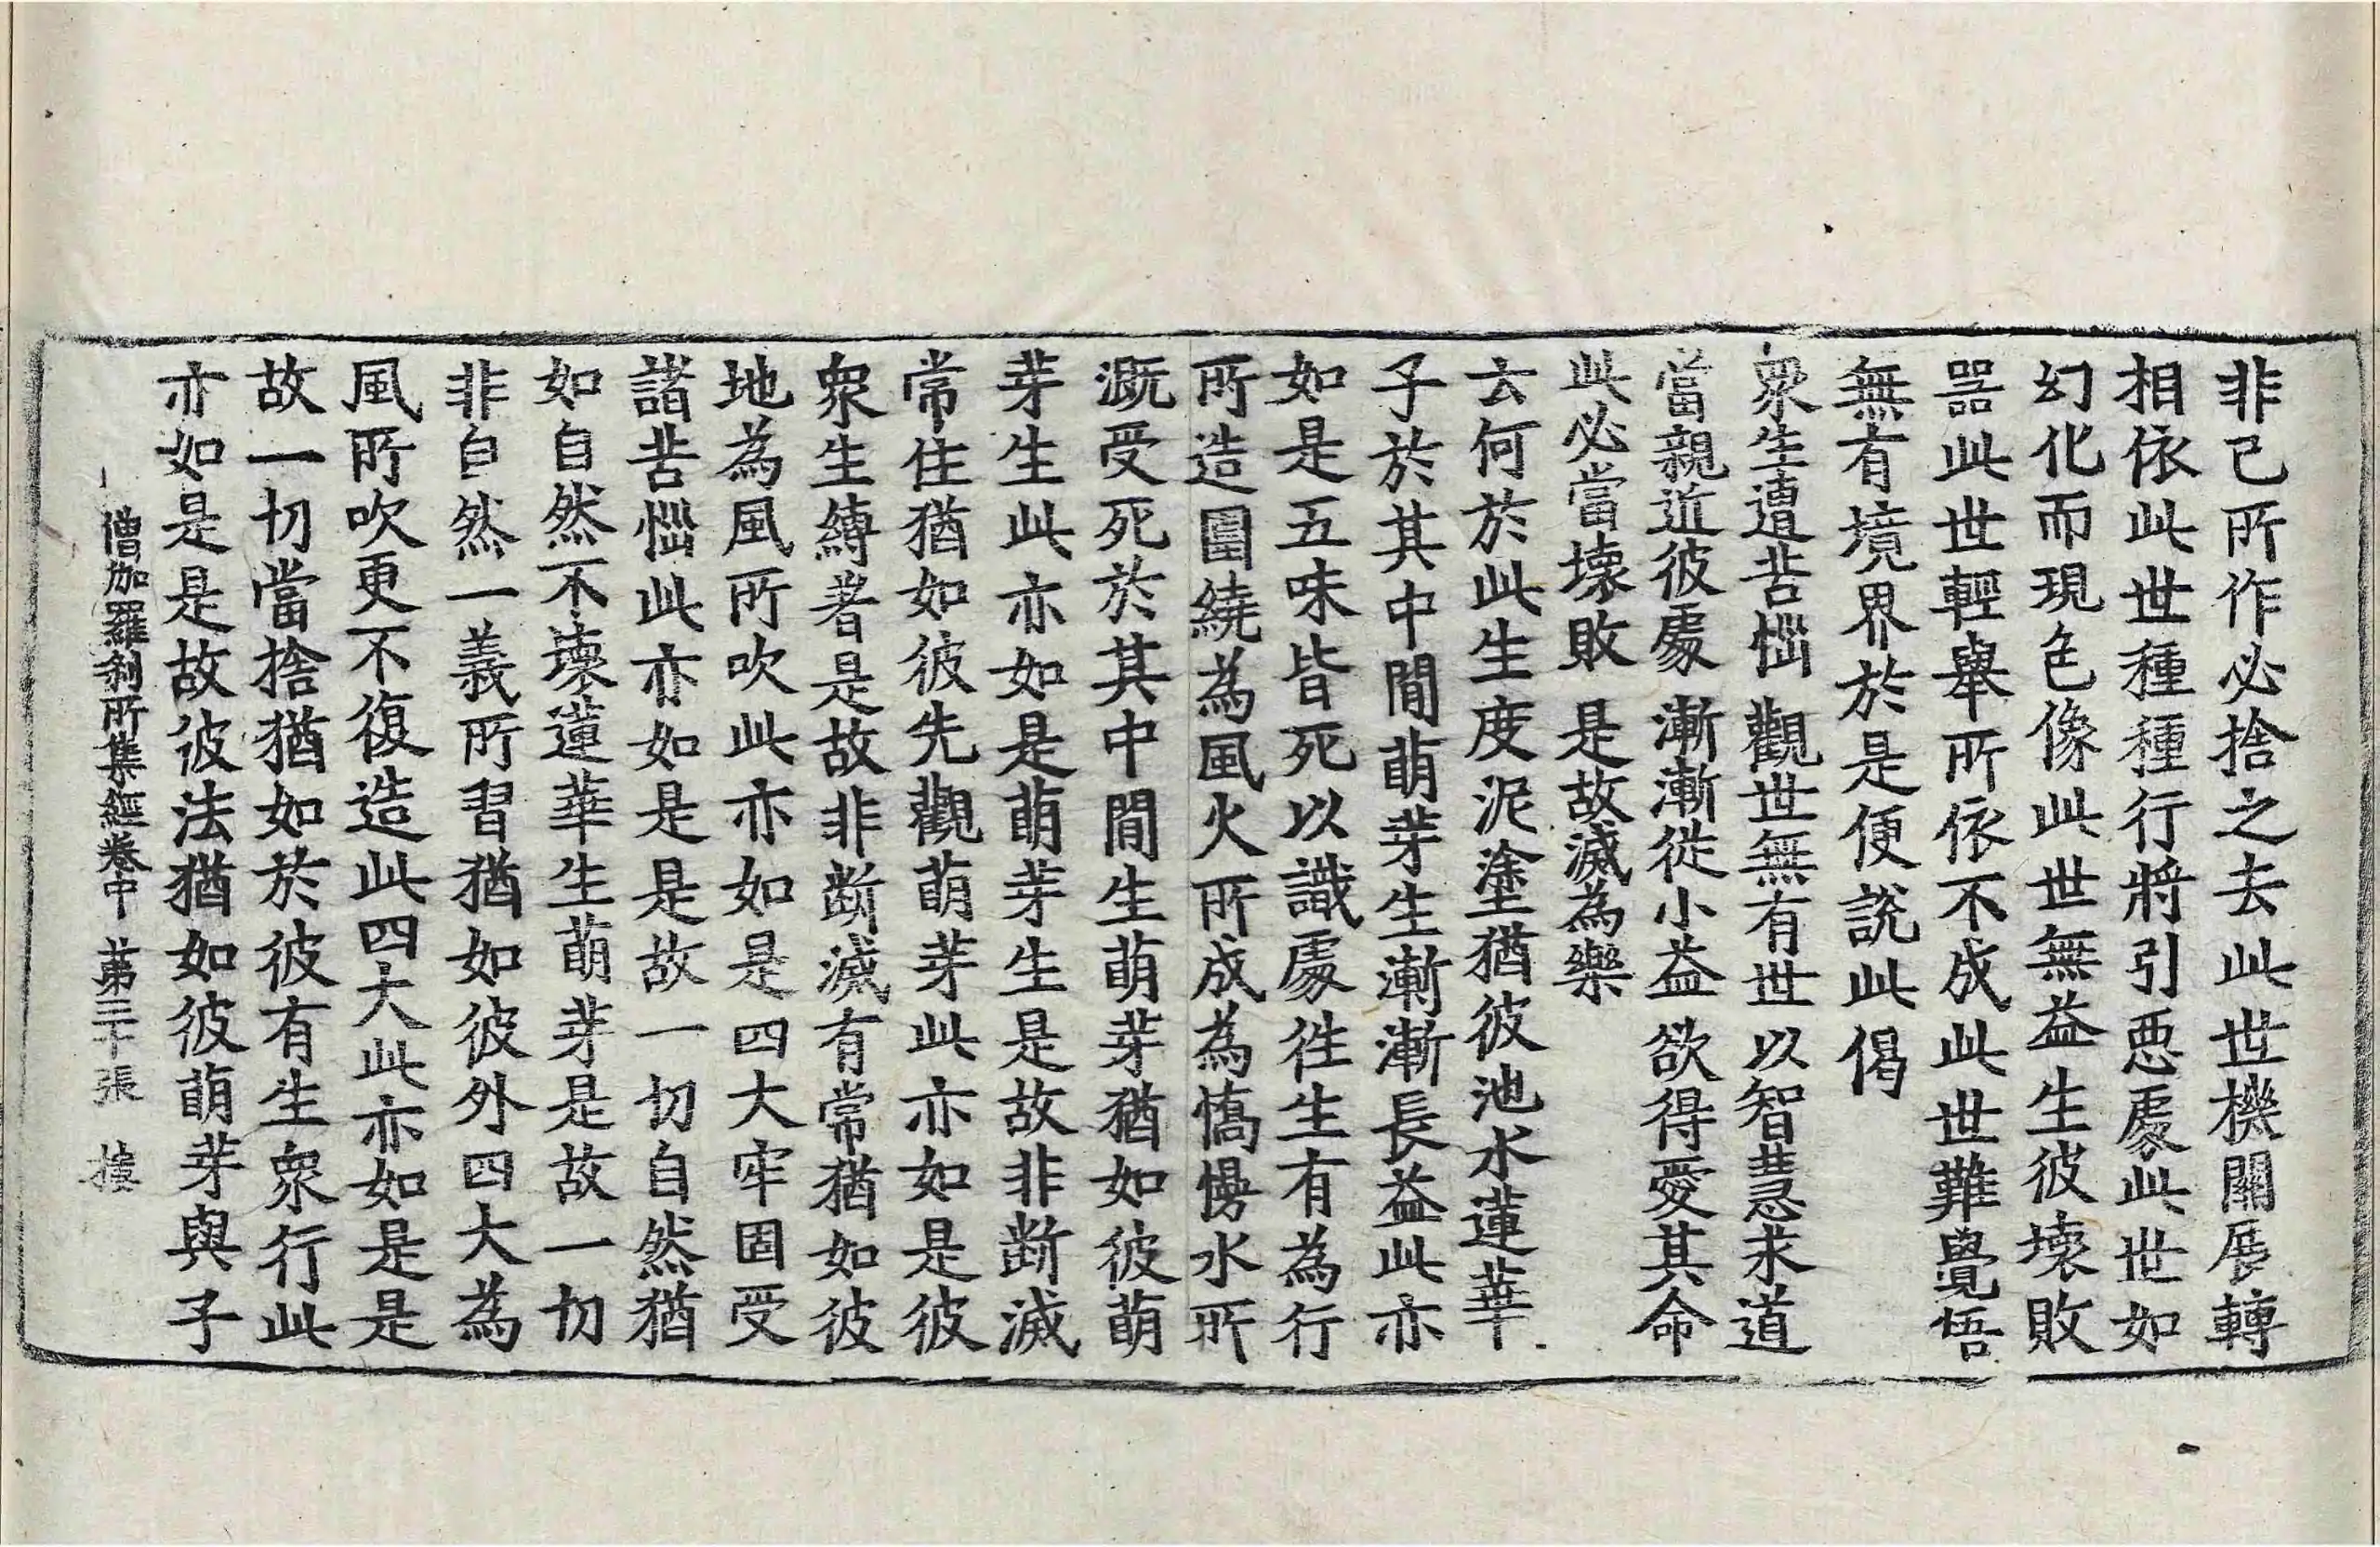 非己所作必捨之去此世機關展轉
相依此世種種行將引惡處此世如
幻化而現色像此世無益生彼壞敗
器此世輕舉所依不成此世難覺悟
無有境界於是便說此偈
眾生遭苦惱 觀世無有世 以智慧求道
當親近彼處 漸漸從小益 欲得愛其命
此必當壞敗 是故滅為樂
云何於此生度泥塗猶彼池水蓮華
子於其中間萌芽生漸漸長益此亦
如是五味皆死以識處往生有為行
所造圍繞為風火所成為憍慢水所
溉受死於其中間生萌芽猶如彼萌
芽生此亦如是萌芽生是故非斷滅
常住猶如彼先觀萌芽此亦如是彼
眾生縛著是故非斷滅有常猶如彼
地為風所吹此亦如是四大牢固受
諸苦惱此亦如是是故一切自然猶
如自然不壞蓮華生萌芽是故一切
非自然一義所習猶如彼外四大為
風所吹更不復造此四大此亦如是是
故一切當捨猶如於彼有生眾行此
亦如是是故彼法猶如彼萌芽與子
僧加羅剎所集經卷中 第三十張 樸